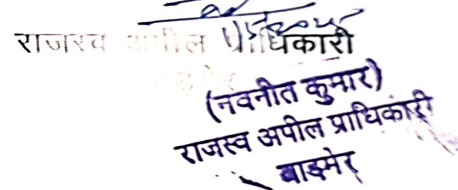 राजस्व अपील प्राधिकारी
(नवनीत कुमार)
राजस्व अपील प्राधिकारी
बाड़मेर